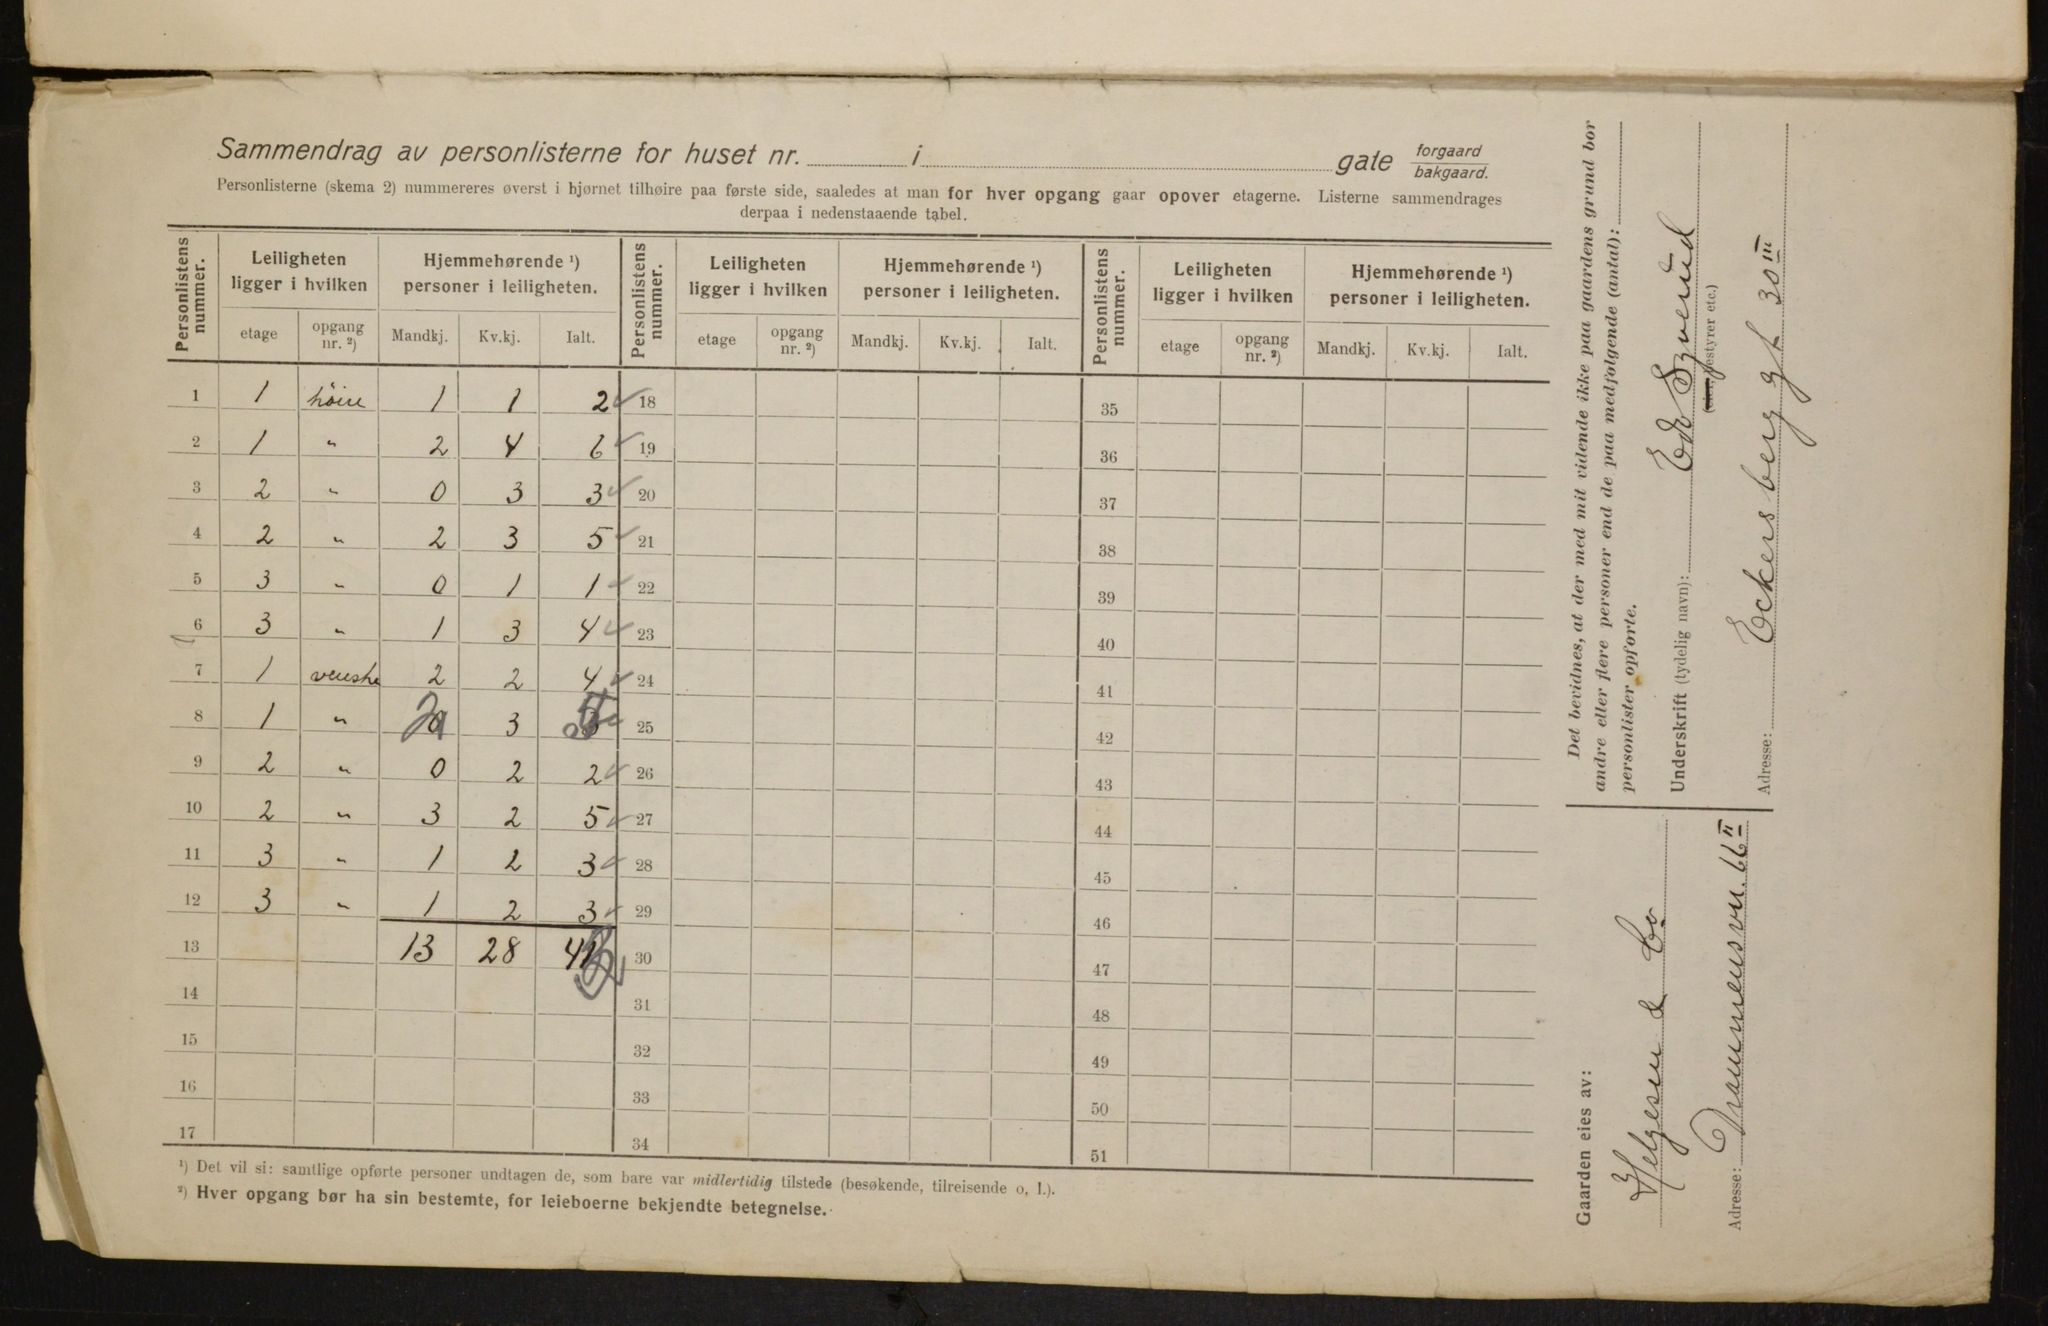 Sammendrag av personlisterne for huset nr. i gate forgaard bakgaard.
Personlisterne (skema 2) nummereres øverst i hjørnet tilhøire paa første side, saaledes at man for hver opgang gaar opover etagerne. Listerne sammendrages
derpaa i nedenstaaende tabel.
Personlistens nummer. Leiligheten ligger i hvilken Hjemmehørende ¹) personer i leiligheten. Personlistens nummer. Leiligheten ligger i hvilken Hjemmehørende ¹) personer i leiligheten. Personlistens nummer. Leiligheten ligger i hvilken Hjemmehørende ¹) personer i leiligheten.
etage opgang nr. ²) Mandkj. Kv.kj. Ialt. etage opgang nr. ²) Mandkj. Kv.kj. Ialt. etage opgang nr. ²) Mandkj. Kv.kj. Ialt.
1 1 höire 1 1 2 18 35
2 1 " 2 4 6 19 36
3 2 " 0 3 3 20 37
4 2 " 2 3 5 21 38
5 3 " 0 1 1 22 39
6 3 " 1 3 4 23 40
7 1 venstre 2 2 4 24 41
8 1 " 3 25 42
9 2 " 0 2 2 26 43
10 2 " 3 2 5 27 44
11 3 " 1 2 3 28 45
12 3 " 1 2 3 29 46
13 13 28 41 30 47
14 31 48
15 32 49
16 33 50
17 34 51
¹) Det vil si: samtlige opførte personer undtagen de, som bare var midlertidig tilstede (besøkende, tilreisende o. l.).
²) Hver opgang bør ha sin bestemte, for leieboerne bekjendte betegnelse.
Det bevidnes, at der med mit vidende ikke paa gaardens grund bor
andre eller flere personer end de paa medfølgende (antal):
personlister opførte.
Underskrift (tydelig navn): Edv
(eier, bestyrer etc.)
Adresse: Eckersberg gt 30 III
Gaarden eies av:
Helgesen & Co
Adresse: Drammensvn. 66 II